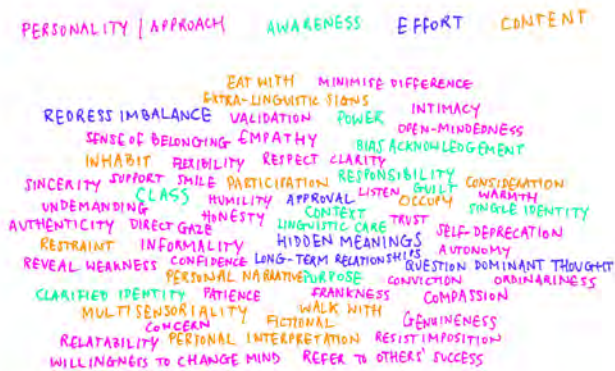 PERSONALITY / APPROACH AWARENESS EFFORT CONTENT
EAT WITH MINIMISE DIFFERENCE
EXTRA-LINGUISTIC SIGNS INTIMACY
REDRESS IMBALANCE VALIDATION POWER OPEN-MINDEDNESS
SENSE OF BELONGING EMPATHY BIAS ACKNOWLEDGEMENT
INHABIT FLEXIBILITY RESPECT CLARITY
SINCERITY SUPPORT SMILE PARTICIPATION RESPONSIBILITY CONSIDERATION
CLASS HUMILITY APPROVAL LISTEN GUILT OCCUPY WARMTH
UNDEMANDING HONESTY CONTEXT SINGLE IDENTITY
AUTHENTICITY DIRECT GAZE LINGUISTIC CARE TRUST SELF-DEPRECATION
RESTRAINT INFORMALITY HIDDEN MEANINGS AUTONOMY
REVEAL WEAKNESS CONFIDENCE LONG-TERM RELATIONSHIPS QUESTION DOMINANT THOUGHT
PERSONAL NARRATIVE PURPOSE CONVICTION ORDINARINESS
CLARIFIED IDENTITY PATIENCE FRANKNESS COMPASSION
MULTISENSORIALITY WALK WITH
CONCERN FICTIONAL GENUINENESS
RELATABILITY PERSONAL INTERPRETATION RESIST IMPOSITION
WILLINGNESS TO CHANGE MIND REFER TO OTHERS' SUCCESS